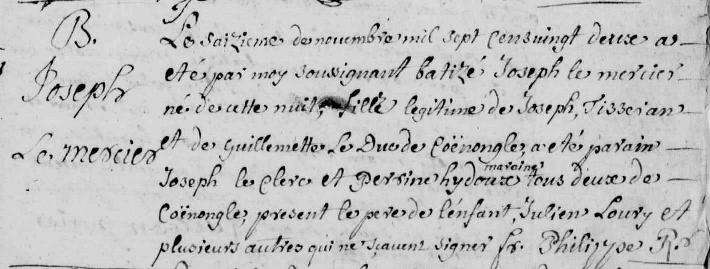 B.
Joseph
Le mercier
Le saizieme de novembre mil sept cens vingt deux a
eté par moy soussignant batizé Joseph le mercier
né de cette nuit, fille legitime de Joseph, Tisseran
et de Guillemette Le Duc de Coënongle, a eté parain
maraine
Joseph le Clerc et Perrine hydoux tous deux de
Coënongle, present le pere de l'enfant, Julien Loury et
plusieurs autres qui ne sçavent signer fr. Philippe R.r